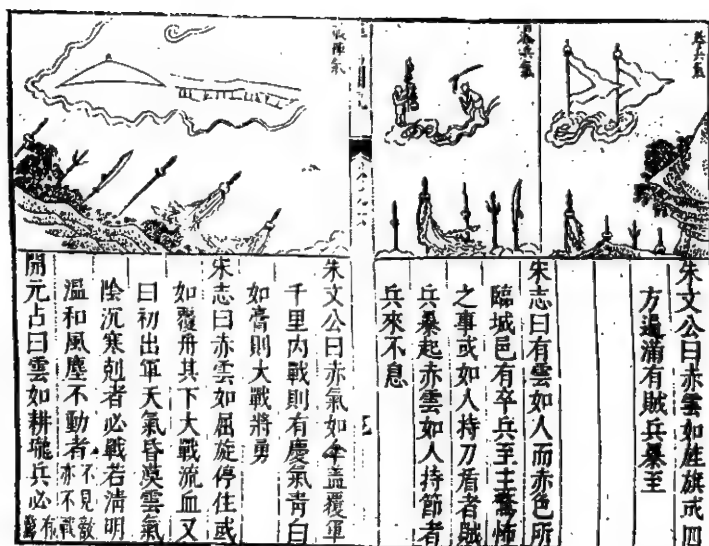 暴兵氣
暴兵氣
朱文公曰赤雲如旌旗或四
方遍滿有賊兵暴至
宋志曰有雲如人而赤色所
臨城邑有卒兵至主驚怖
之事或如人持刀盾者賊
兵暴起赤雲如人持節者
兵來不息
朱文公曰赤氣如傘蓋覆軍
千里內戰則有慶氣青白
如膏則大戰將勇
宋志曰赤雲如屈旋停住或
如覆舟其下大戰流血又
曰初出軍天氣昏漠雲氣
陰沉寒剋者必戰若清明
溫和風塵不動者不見敵亦不戰
開元占曰雲如耕壠兵必